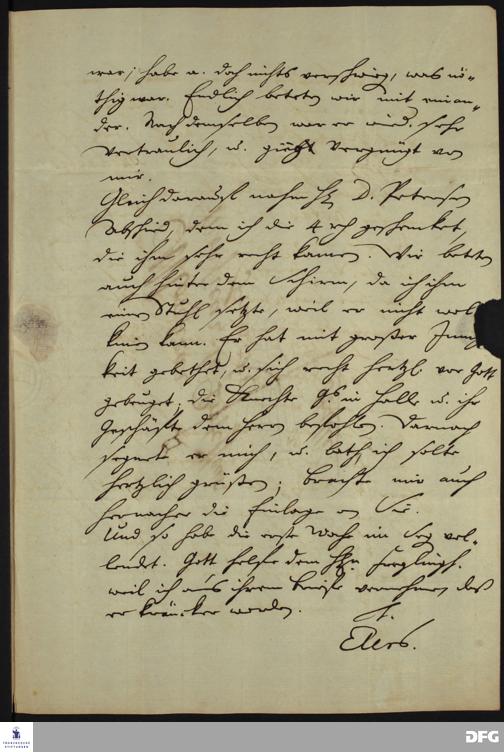 war; habe a. doch nichts verschwieg, was nö-
thig war. Endlich beteten wir mit einan-
der. Nach demselben war er wied. sehr
vertraulich, u. zieht vergnügt von
mir.
Gleich darauf nahm H. D. Petersen
Abschied, dem ich die 4 rth geschencket,
die ihm sehr recht kamen. Wir beteten
auch hinter dem Schirm, da ich ihm
einen Stuhl setzte, weil er nicht wol
knien kann. Er hat mit großer
keit gebethet, u. sich recht hertzl. vor Gott
gebeuget, die Knechte Gs in Halle u. ihr
Geschäffte dem Herrn befohlen. Darnach
segnete er mich, u. bath, ich solte
hertzlich grüßen; brachte mir auch
hernacher die Einlage an Sie.
Und so habe die erste Woche im Seg vol-
lendt. Gott helfe dem H.
weil ich aus ihrem Briefe vernehme, daß
er kräncker worden.
Elers.
DFG
FRANCKESCHE STIFTUNGEN